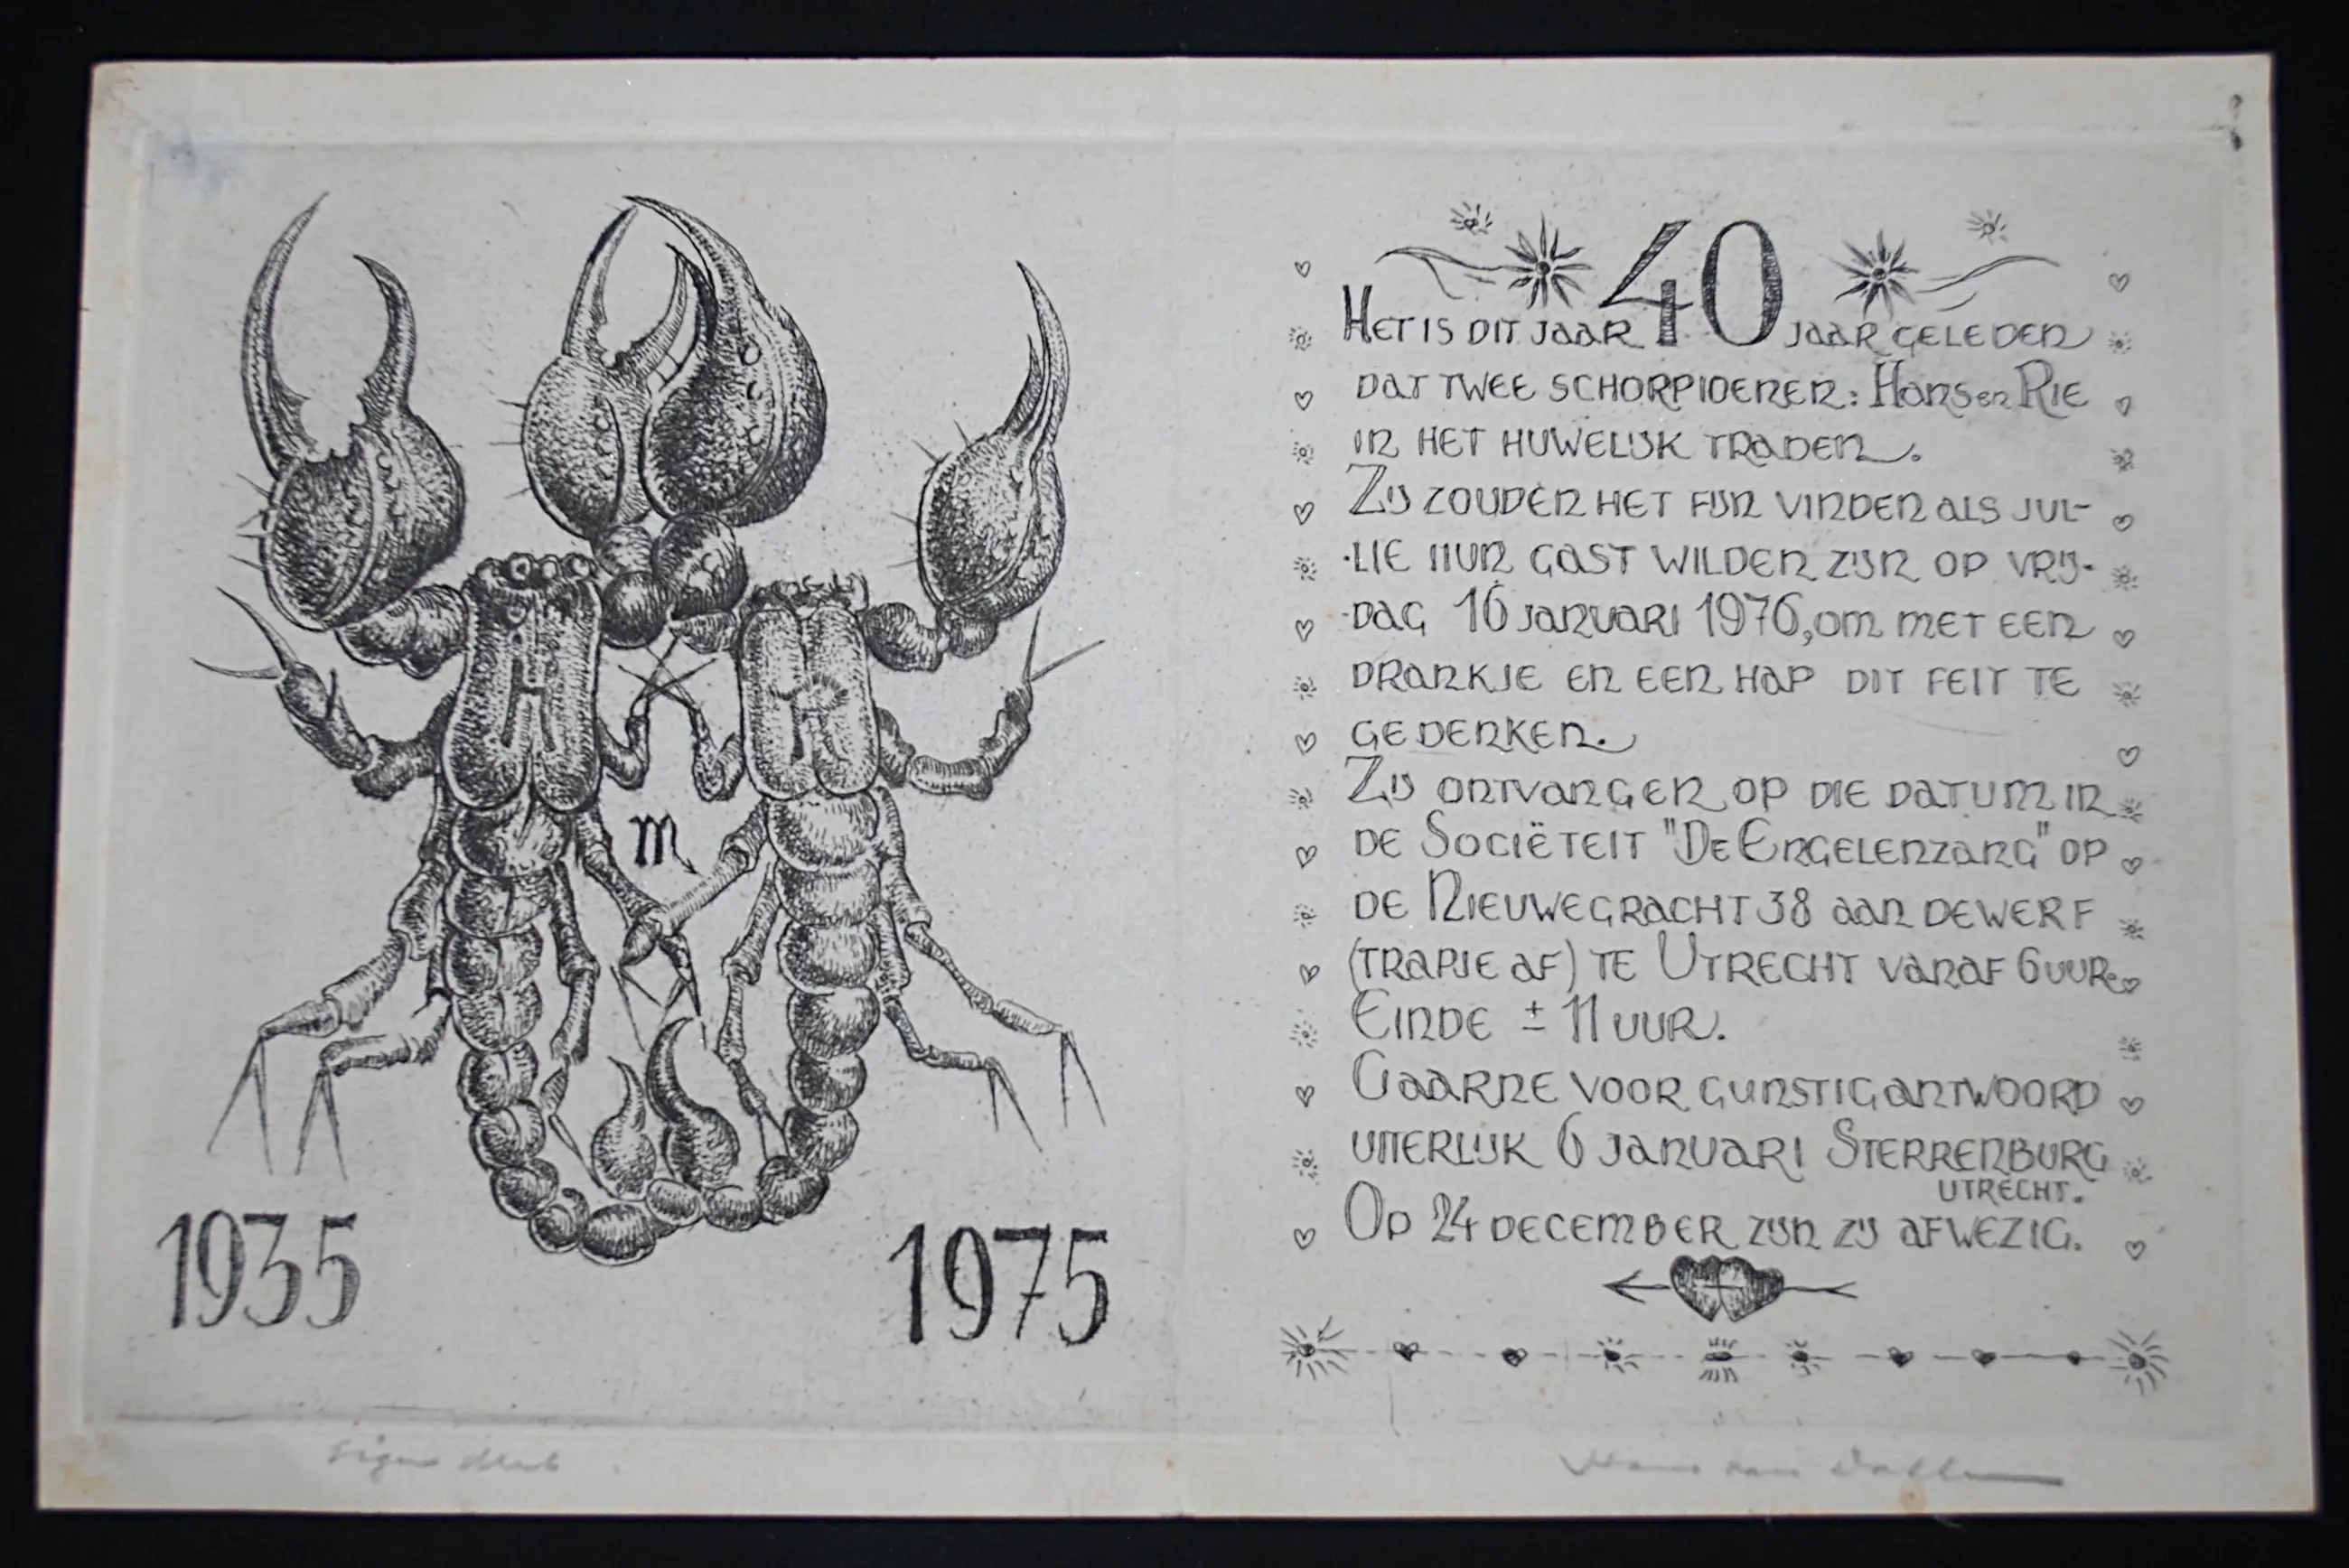 H R
♏
1935 1975
40
Het is dit jaar 40 jaar geleden
dat twee schorpioenen: Hans en Rie
in het huwelijk traden.
Zij zouden het fijn vinden als jul-
-lie hun gast wilden zijn op vrij-
-dag 16 januari 1976, om met een
drankje en een hap dit feit te
gedenken.
Zij ontvangen op die datum in
de Sociëteit "De Engelenzang" op
de Nieuwegracht 38 aan de werf
(trapje af) te Utrecht vanaf 6 uur.
Einde ± 11 uur.
Gaarne voor gunstig antwoord
uiterlijk 6 januari Sterrenburg
Utrecht.
Op 24 december zijn zij afwezig.
Hans van